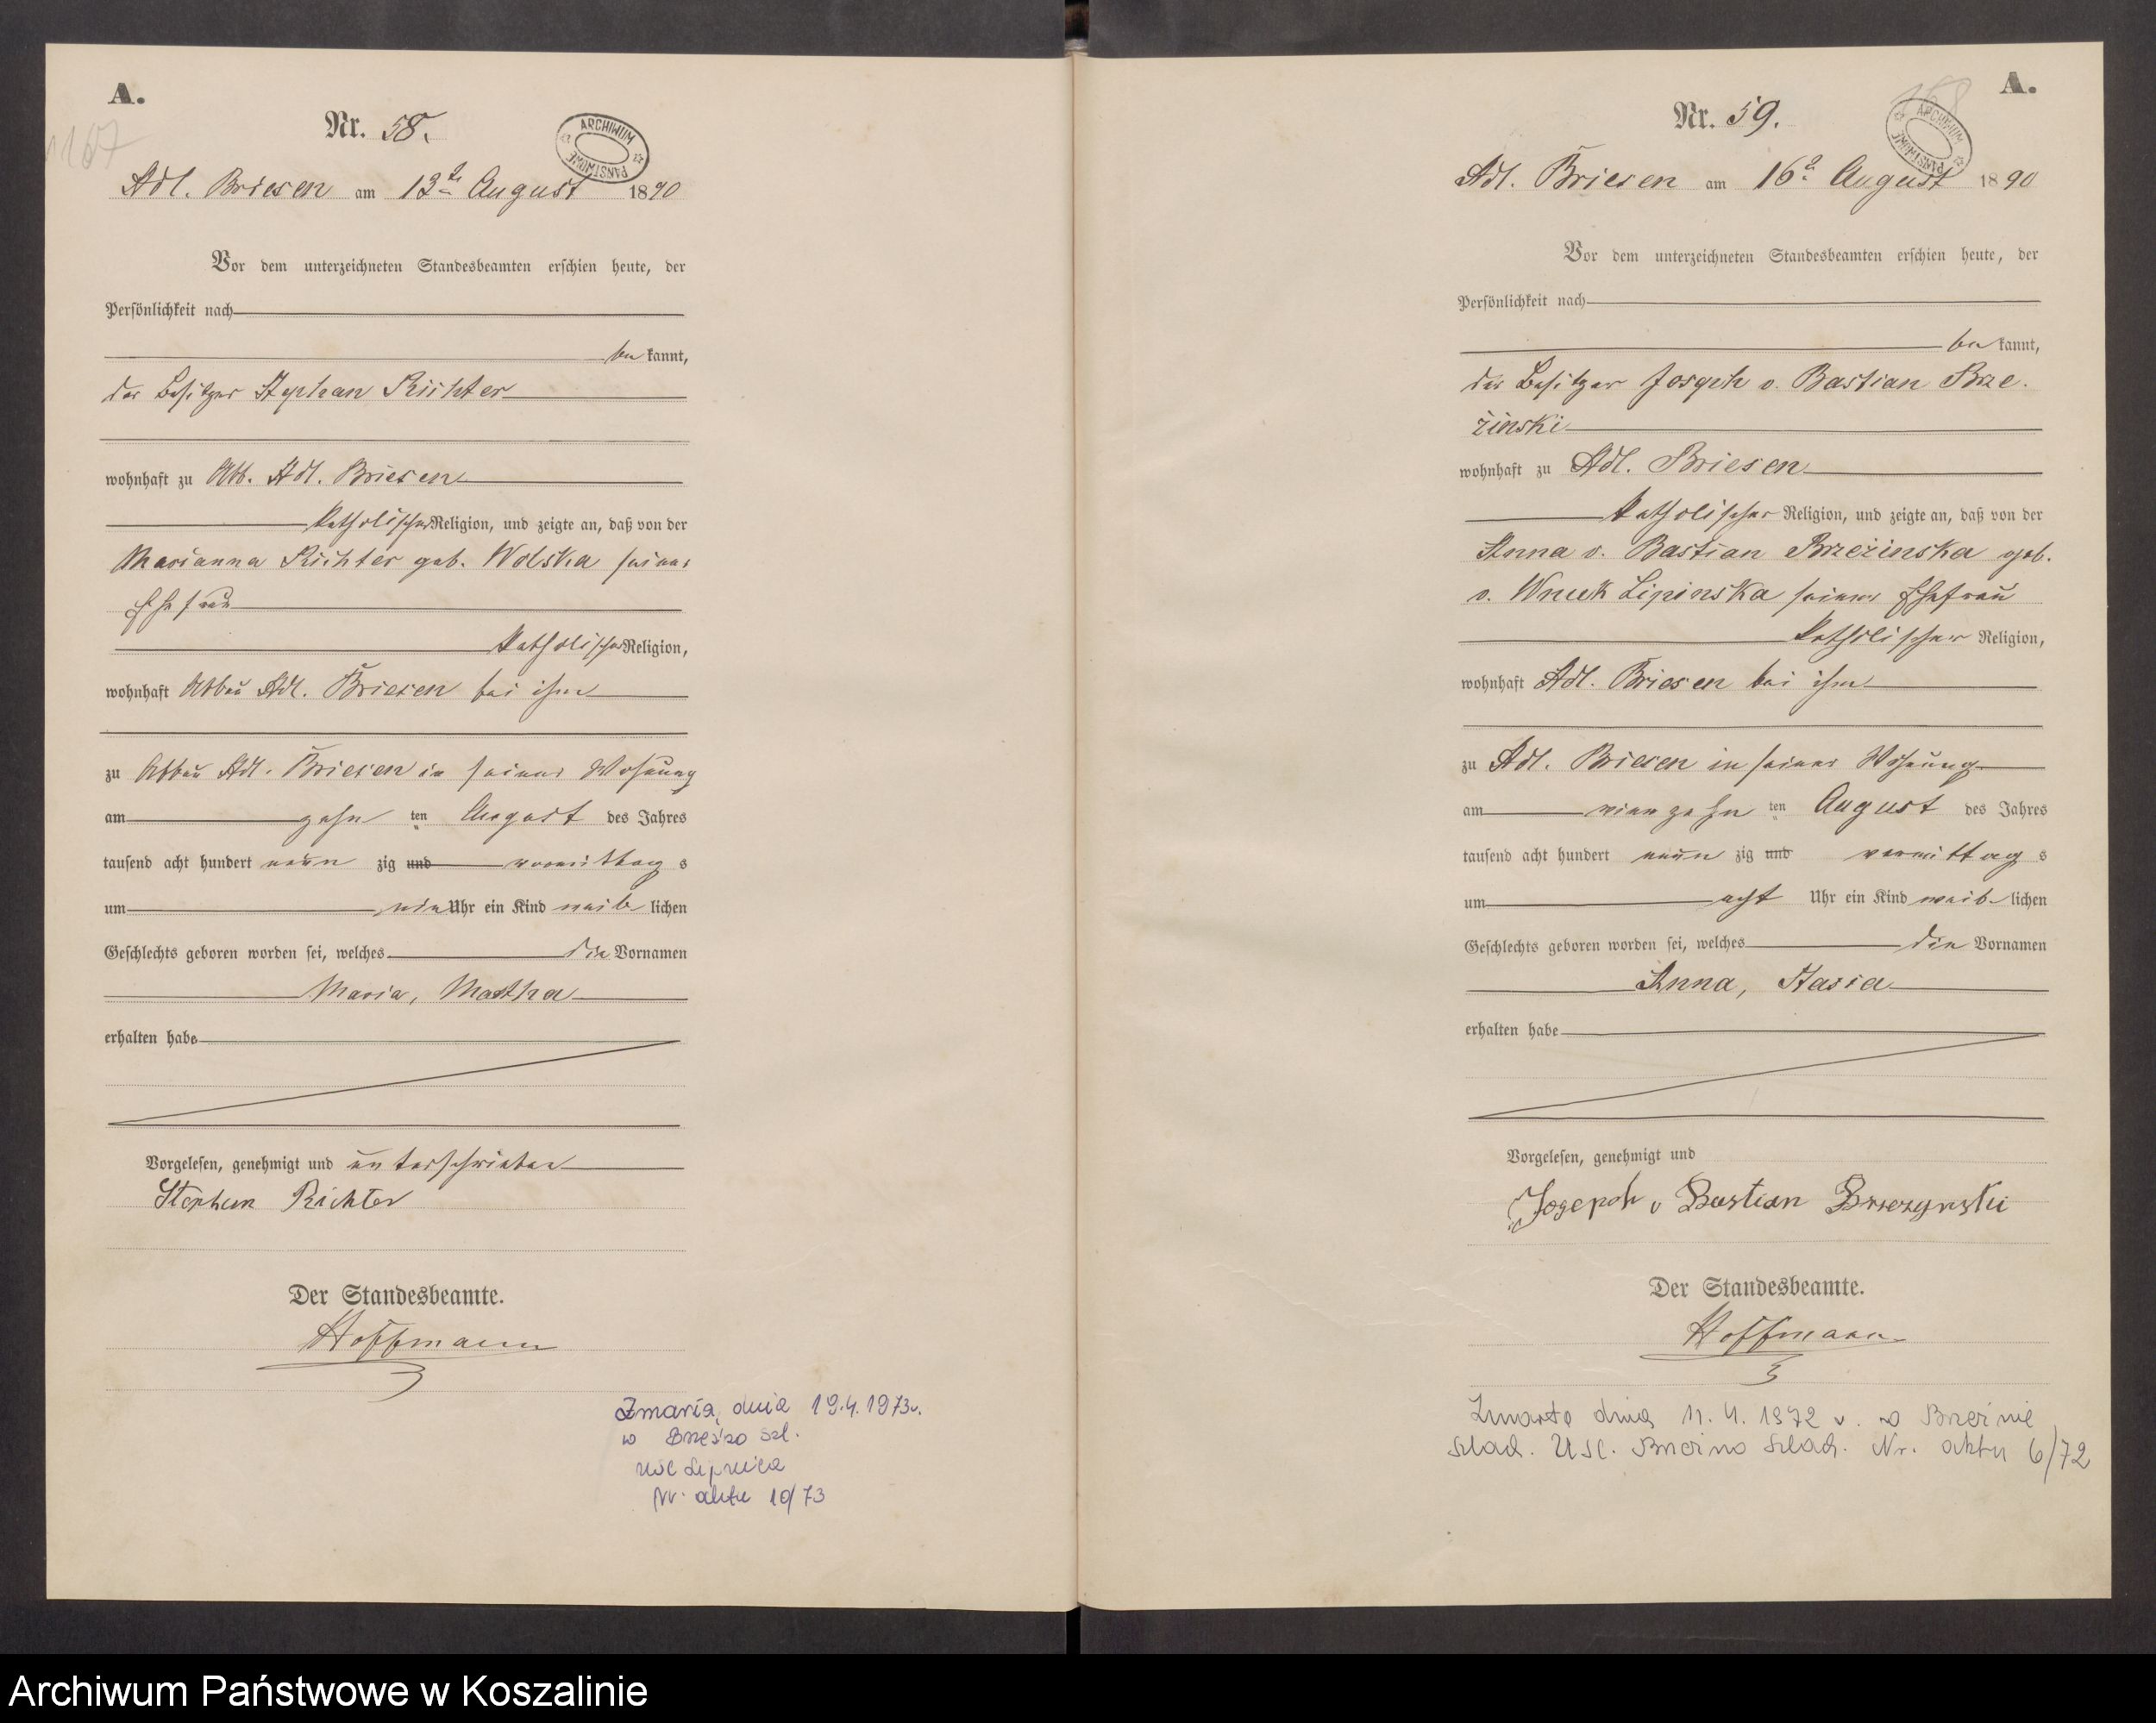 A.
1167
Nr. 58.
ARCHIWUM PAŃSTWOWE
Adl. Briesen am 13te August 1890
Vor dem unterzeichneten Standesbeamten erschien heute, der
Persönlichkeit nach
be kannt,
der Besitzer Stephan Richter
wohnhaft zu Abb. Adl. Briesen
katholischer Religion, und zeigte an, daß von der
Marianna Richter geb. Wolska seiner
Ehefrau
katholischer Religion,
wohnhaft Abbau Adl. Briesen bei ihm
zu Abbau Adl. Briesen in seiner Wohnung
am zehn ten August des Jahres
tausend acht hundert neun zig und vormittag s
um Uhr ein Kind weib lichen
Geschlechts geboren worden sei, welches die Vornamen
Maria, Martha
erhalten habe
Vorgelesen, genehmigt und unterschrieben
Stephan Richter
Der Standesbeamte.
Hoffmann
Zmarła, dnia 19.4.1973r.
w Brzeźno Szl.
USC Lipnica
Nr. aktu 10/73
A.
168
Nr. 59.
ARCHIWUM PAŃSTWOWE
Adl. Briesen am 16t August 1890
Vor dem unterzeichneten Standesbeamten erschien heute, der
Persönlichkeit nach
be kannt,
der Besitzer Joseph v. Bastian Brze.
zinski
wohnhaft zu Adl. Briesen
katholischer Religion, und zeigte an, daß von der
Anna v. Bastian Brzezinska geb.
v. Wnuk Lipinska seiner Ehefrau
katholischer Religion,
wohnhaft Adl. Briesen bei ihm
zu Adl. Briesen in seiner Wohnung
am vierzehn ten August des Jahres
tausend acht hundert neun zig und vormittag s
um acht Uhr ein Kind weib lichen
Geschlechts geboren worden sei, welches die Vornamen
Anna, Stasia
erhalten habe
Vorgelesen, genehmigt und
Jogeph v Bastian Brzezynski
Der Standesbeamte.
Hoffmann
Zmarła dnia 11. 4. 1972 r. w Brzeźnie
Szlach. USC. Brzeźno Szlach. Nr. aktu 6/72
Archiwum Państwowe w Koszalinie